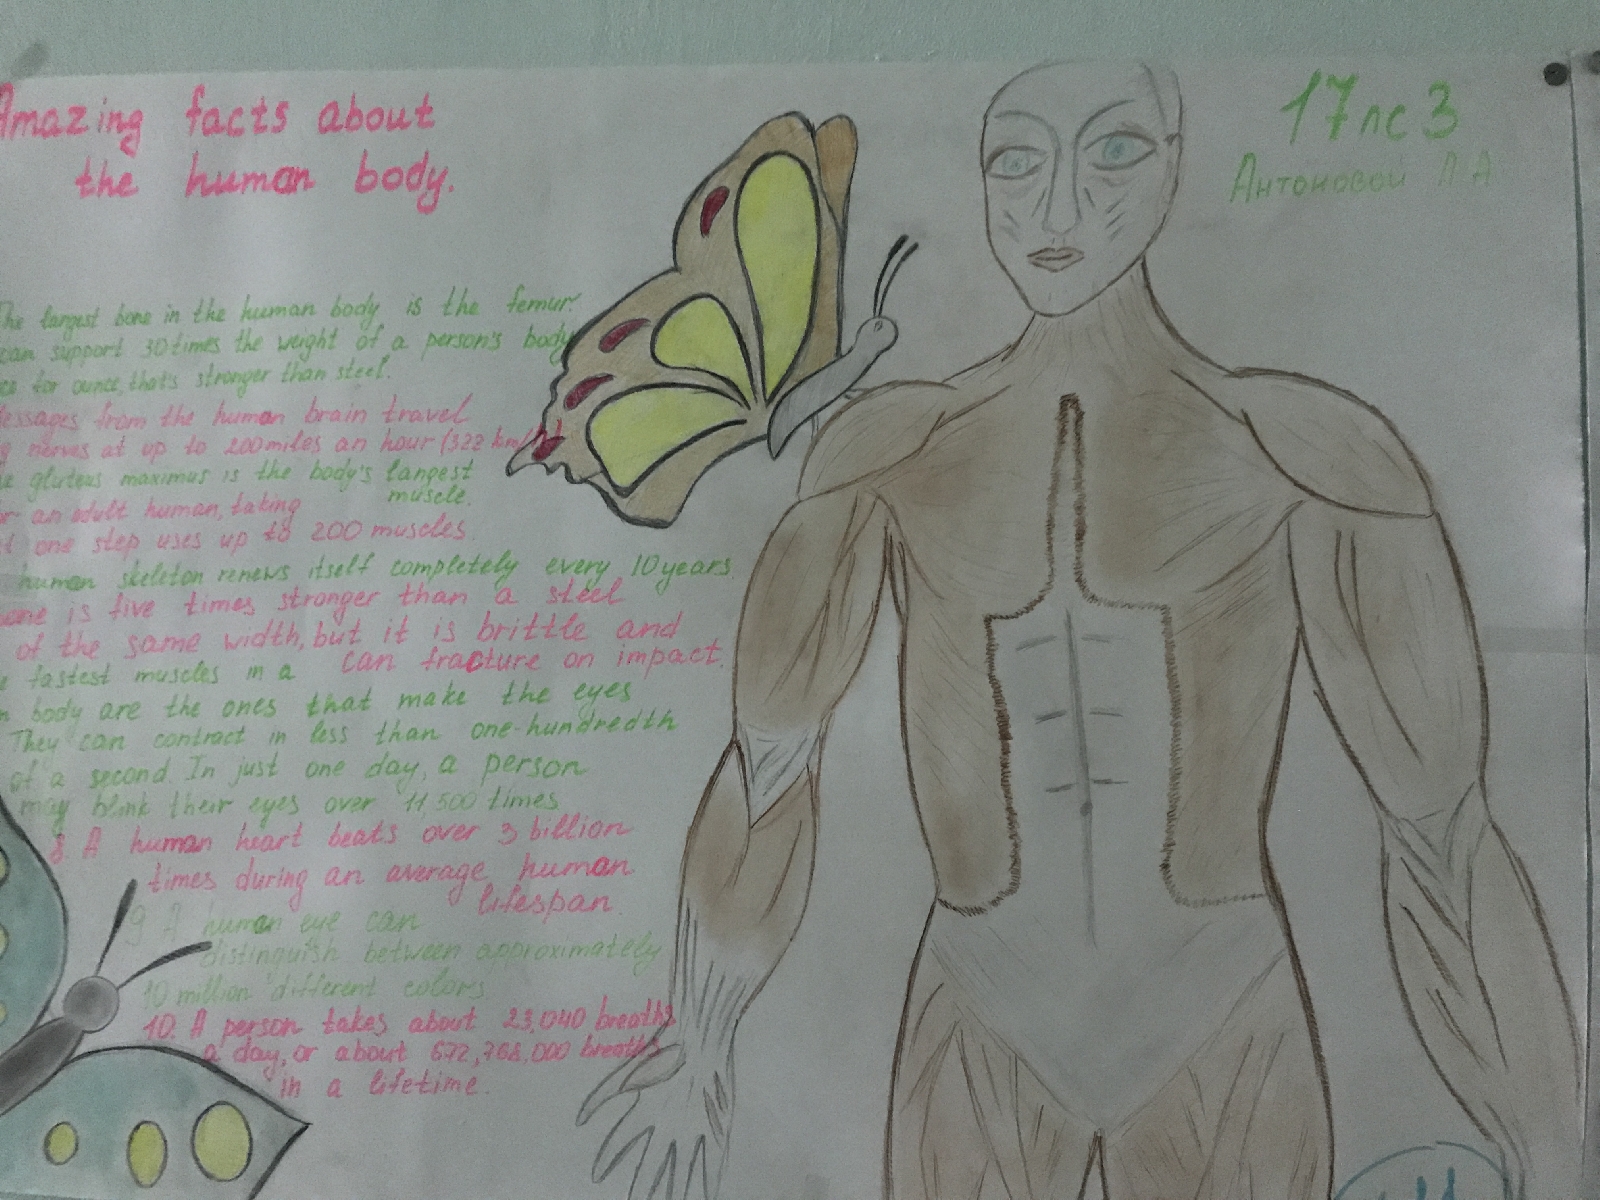 Amazing facts about
the human body.
17лс3
Антоновой Л А
The largest bone in the human body is the femur.
can support 30 times the weight of a person's body
for ounce, that's stronger than steel.
Messages from the human brain travel
nerves at up to 200 miles an hour (322 km/h)
gluteus maximus is the body's largest
muscle.
an adult human, taking
one step uses up to 200 muscles.
human skeleton renews itself completely every 10 years.
is five times stronger than a steel
of the same width, but it is brittle and
can fracture on impact.
fastest muscles in a
body are the ones that make the eyes
They can contract in less than one-hundredth
of a second. In just one day, a person
may blink their eyes over 11,500 times
8 A human heart beats over 3 billion
times during an average human
lifespan.
9 A human eye can
distinguish between approximately
10 million different colors
10. A person takes about 23,040 breaths
a day, or about 672,768,000 breaths
in a lifetime.